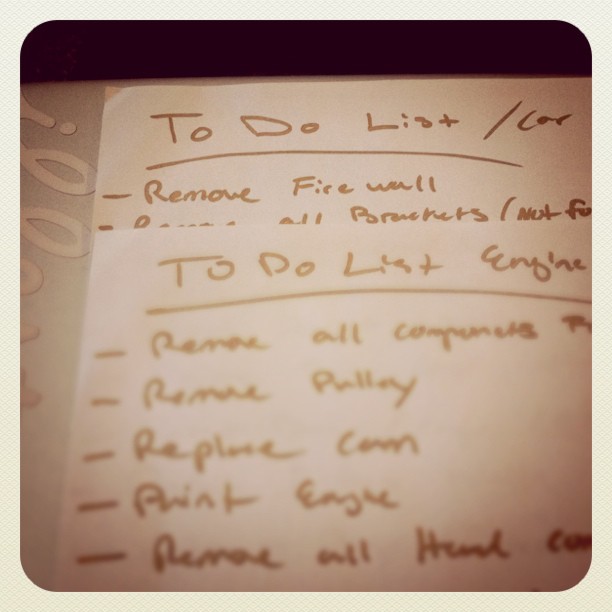 To Do List / Car
- Remove Firewall
- Remove all Brackets (Not fo
To Do List Engine
- Remove all components
- Remove Pulley
- Replace Cam
- Paint Engine
- Remove all Head